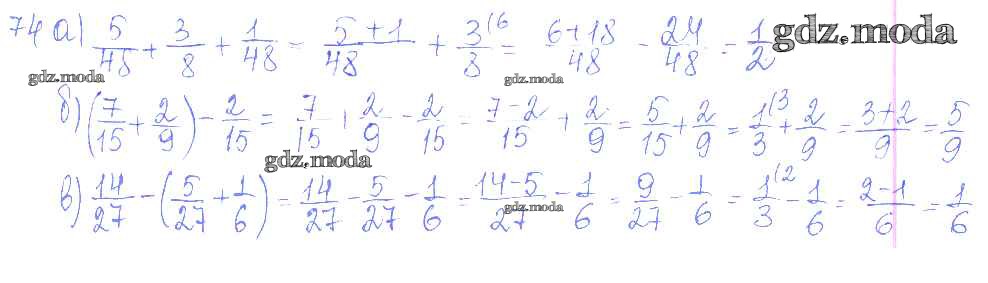 74 а) 5/48 + 3/8 + 1/48 = 5+1/48 + 3(6/8 = 6+18/48 = 24/48 = 1/2 gdz.moda
gdz.moda gdz.moda
б) (7/15 + 2/9) - 2/15 = 7/15 + 2/9 - 2/15 = 7-2/15 + 2/9 = 5/15 + 2/9 = 1(3/3 + 2/9 = 3+2/9 = 5/9
gdz.moda
в) 14/27 - (5/27 + 1/6) = 14/27 - 5/27 - 1/6 = 14-5/27 - 1/6 = 9/27 - 1/6 = 1(2/3 - 1/6 = 2-1/6 = 1/6
gdz.moda